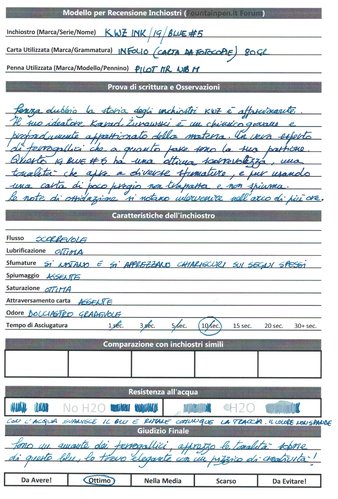 Modello per Recensione Inchiostri (Fountainpen.it Forum)
Inchiostro (Marca/Serie/Nome) KWZ INK/IG/BLUE #5
Carta Utilizzata (Marca/Grammatura) INFOLIO (CARTA DA FOTOCOPIE) 80GR.
Penna Utilizzata (Marca/Modello/Pennino) PILOT MR NIB M
Prova di scrittura e Osservazioni
Senza dubbio la storia degli inchiostri KWZ è affascinante.
Il suo ideatore Konrad Żurawski è un chimico giovane e
profondamente appassionato della materia. Un vero esperto
di ferrogallici che a quanto pare sono la sua passione.
Questo IG BLUE #5 ha una ottima scorrevolezza, una
tonalità che apre a diverse sfumature, e pur usando
una carta di poco pregio non trapassa e non spiuma.
le note di ossidazione si notano intervenire nell'arco di più ore.
Caratteristiche dell'inchiostro
Flusso SCORREVOLE
Lubrificazione OTTIMA
Sfumature SI NOTANO E SI APPREZZANO CHIAROSCURI SUI SEGNI SPESSI
Spiumaggio ASSENTE
Saturazione OTTIMA
Attraversamento carta ASSENTE
Odore DOLCIASTRO GRADEVOLE
Tempo di Asciugatura 1 sec. 3 sec. 5 sec. 10 sec. 15 sec. 20 sec. 30+ sec.
Comparazione con inchiostri simili
Resistenza all'acqua
No H2O H2O
CON L'ACQUA SVANISCE IL BLU E RIMANE COMUNQUE LA TRACCIA. IL COLORE NON SPANDE
Giudizio Finale
Sono un amante dei ferrogallici, apprezzo le tonalità sobrie
di questo blu, lo trovo elegante con un pizzico di creatività!
Da Avere! Ottimo Nella Media Scarso Da Evitare!